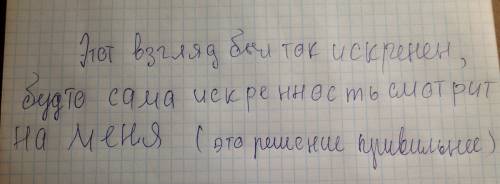 Этот взгляд был так искренен,
будто сама искренность смотрит
на меня (это решение правильнее)